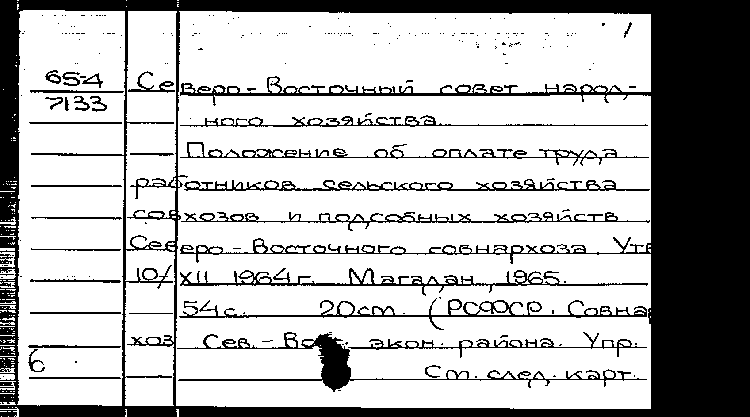 1
65-4 Северо-Восточный совет народ-
7133 ного хозяйства.
Положение об оплате труда
работников сельского хозяйства
совхозов и подсобных хозяйств
Северо-Восточного совнархоза. Утв
10/XII 1964г. Магадан, 1965.
54с. 20cm. (РСФСР. Совнар
хоз Сев.-Вост. экон. района. Упр.
6 Cm. след. карт.